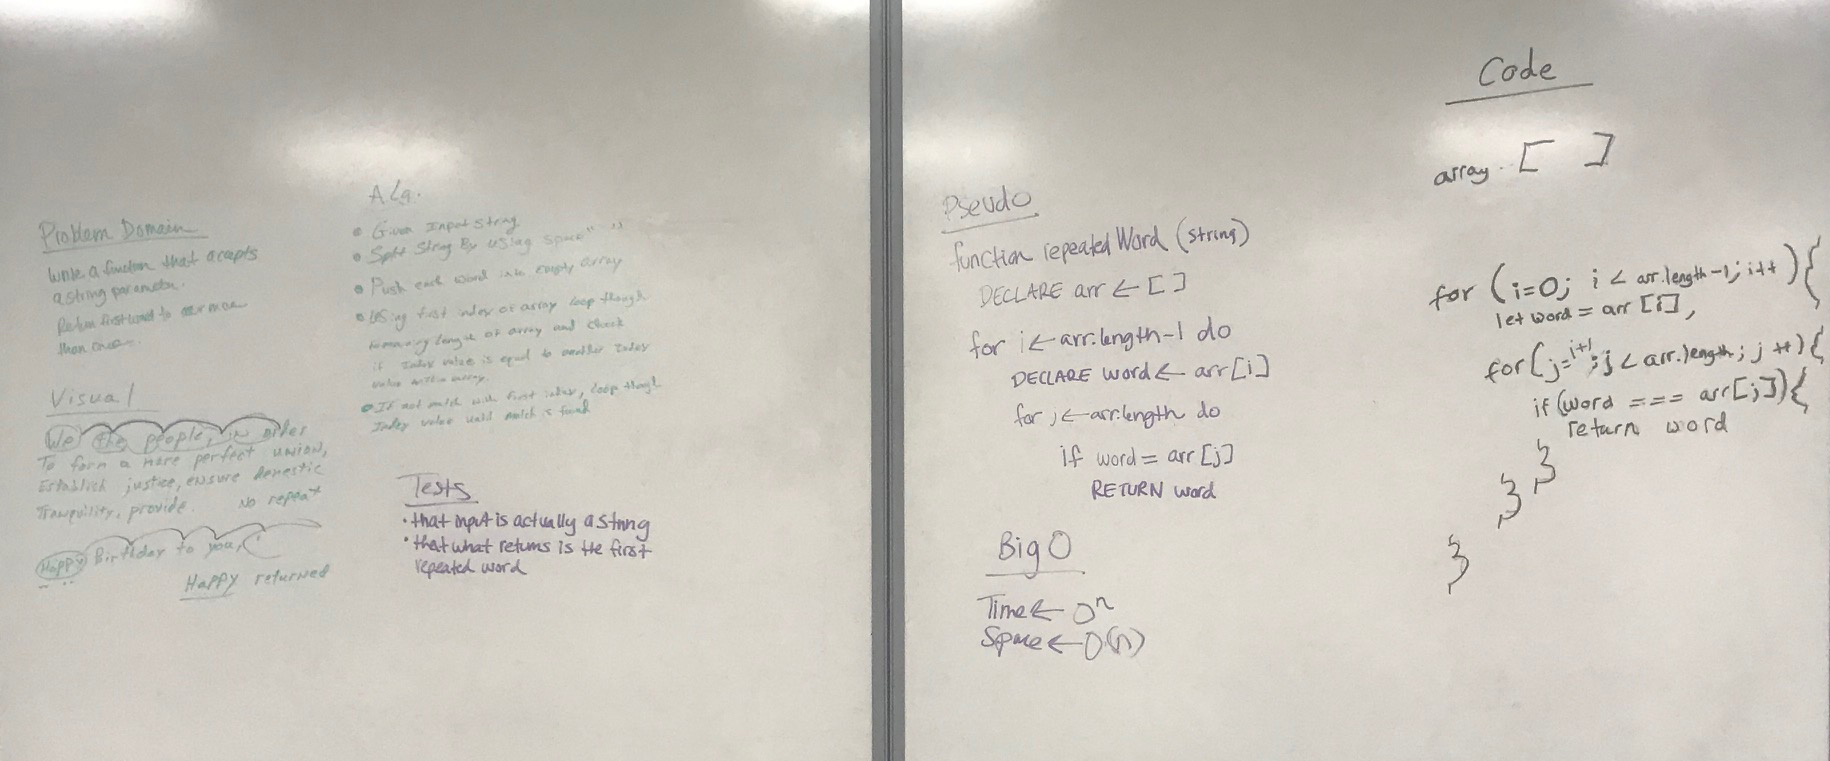 Problem Domain
Write a function that accepts
a string parameter.
Return first word to occur more
than once.
Visual
We the people, in order
To form a more perfect union,
Establish justice, ensure domestic
Tranquility, provide. No repeat
Happy Birthday to you,
Happy returned
Alg.
• Given Input string
• Split String By using space " "
• Push each word into empty array
• Using first index of array loop though
remaining length of array and check
if Index value is equal to another Index
value within array.
• If not match with first index, loop though
Index value until match is found
Tests
• that input is actually a string
• that what returns is the first
repeated word
Pseudo
function repeatedWord (string)
DECLARE arr ← [ ]
for i ← arr.length-1 do
DECLARE word ← arr[i]
for j ← arr.length do
if word = arr[j]
RETURN word
Big O
Time ← O^n
Space ← O(n)
Code
array. [ ]
for (i=0; i < arr.length-1; i++){
let word = arr [i],
for(j=i+1; j < arr.length; j++){
if (word === arr[j]){
return word
}
}
}